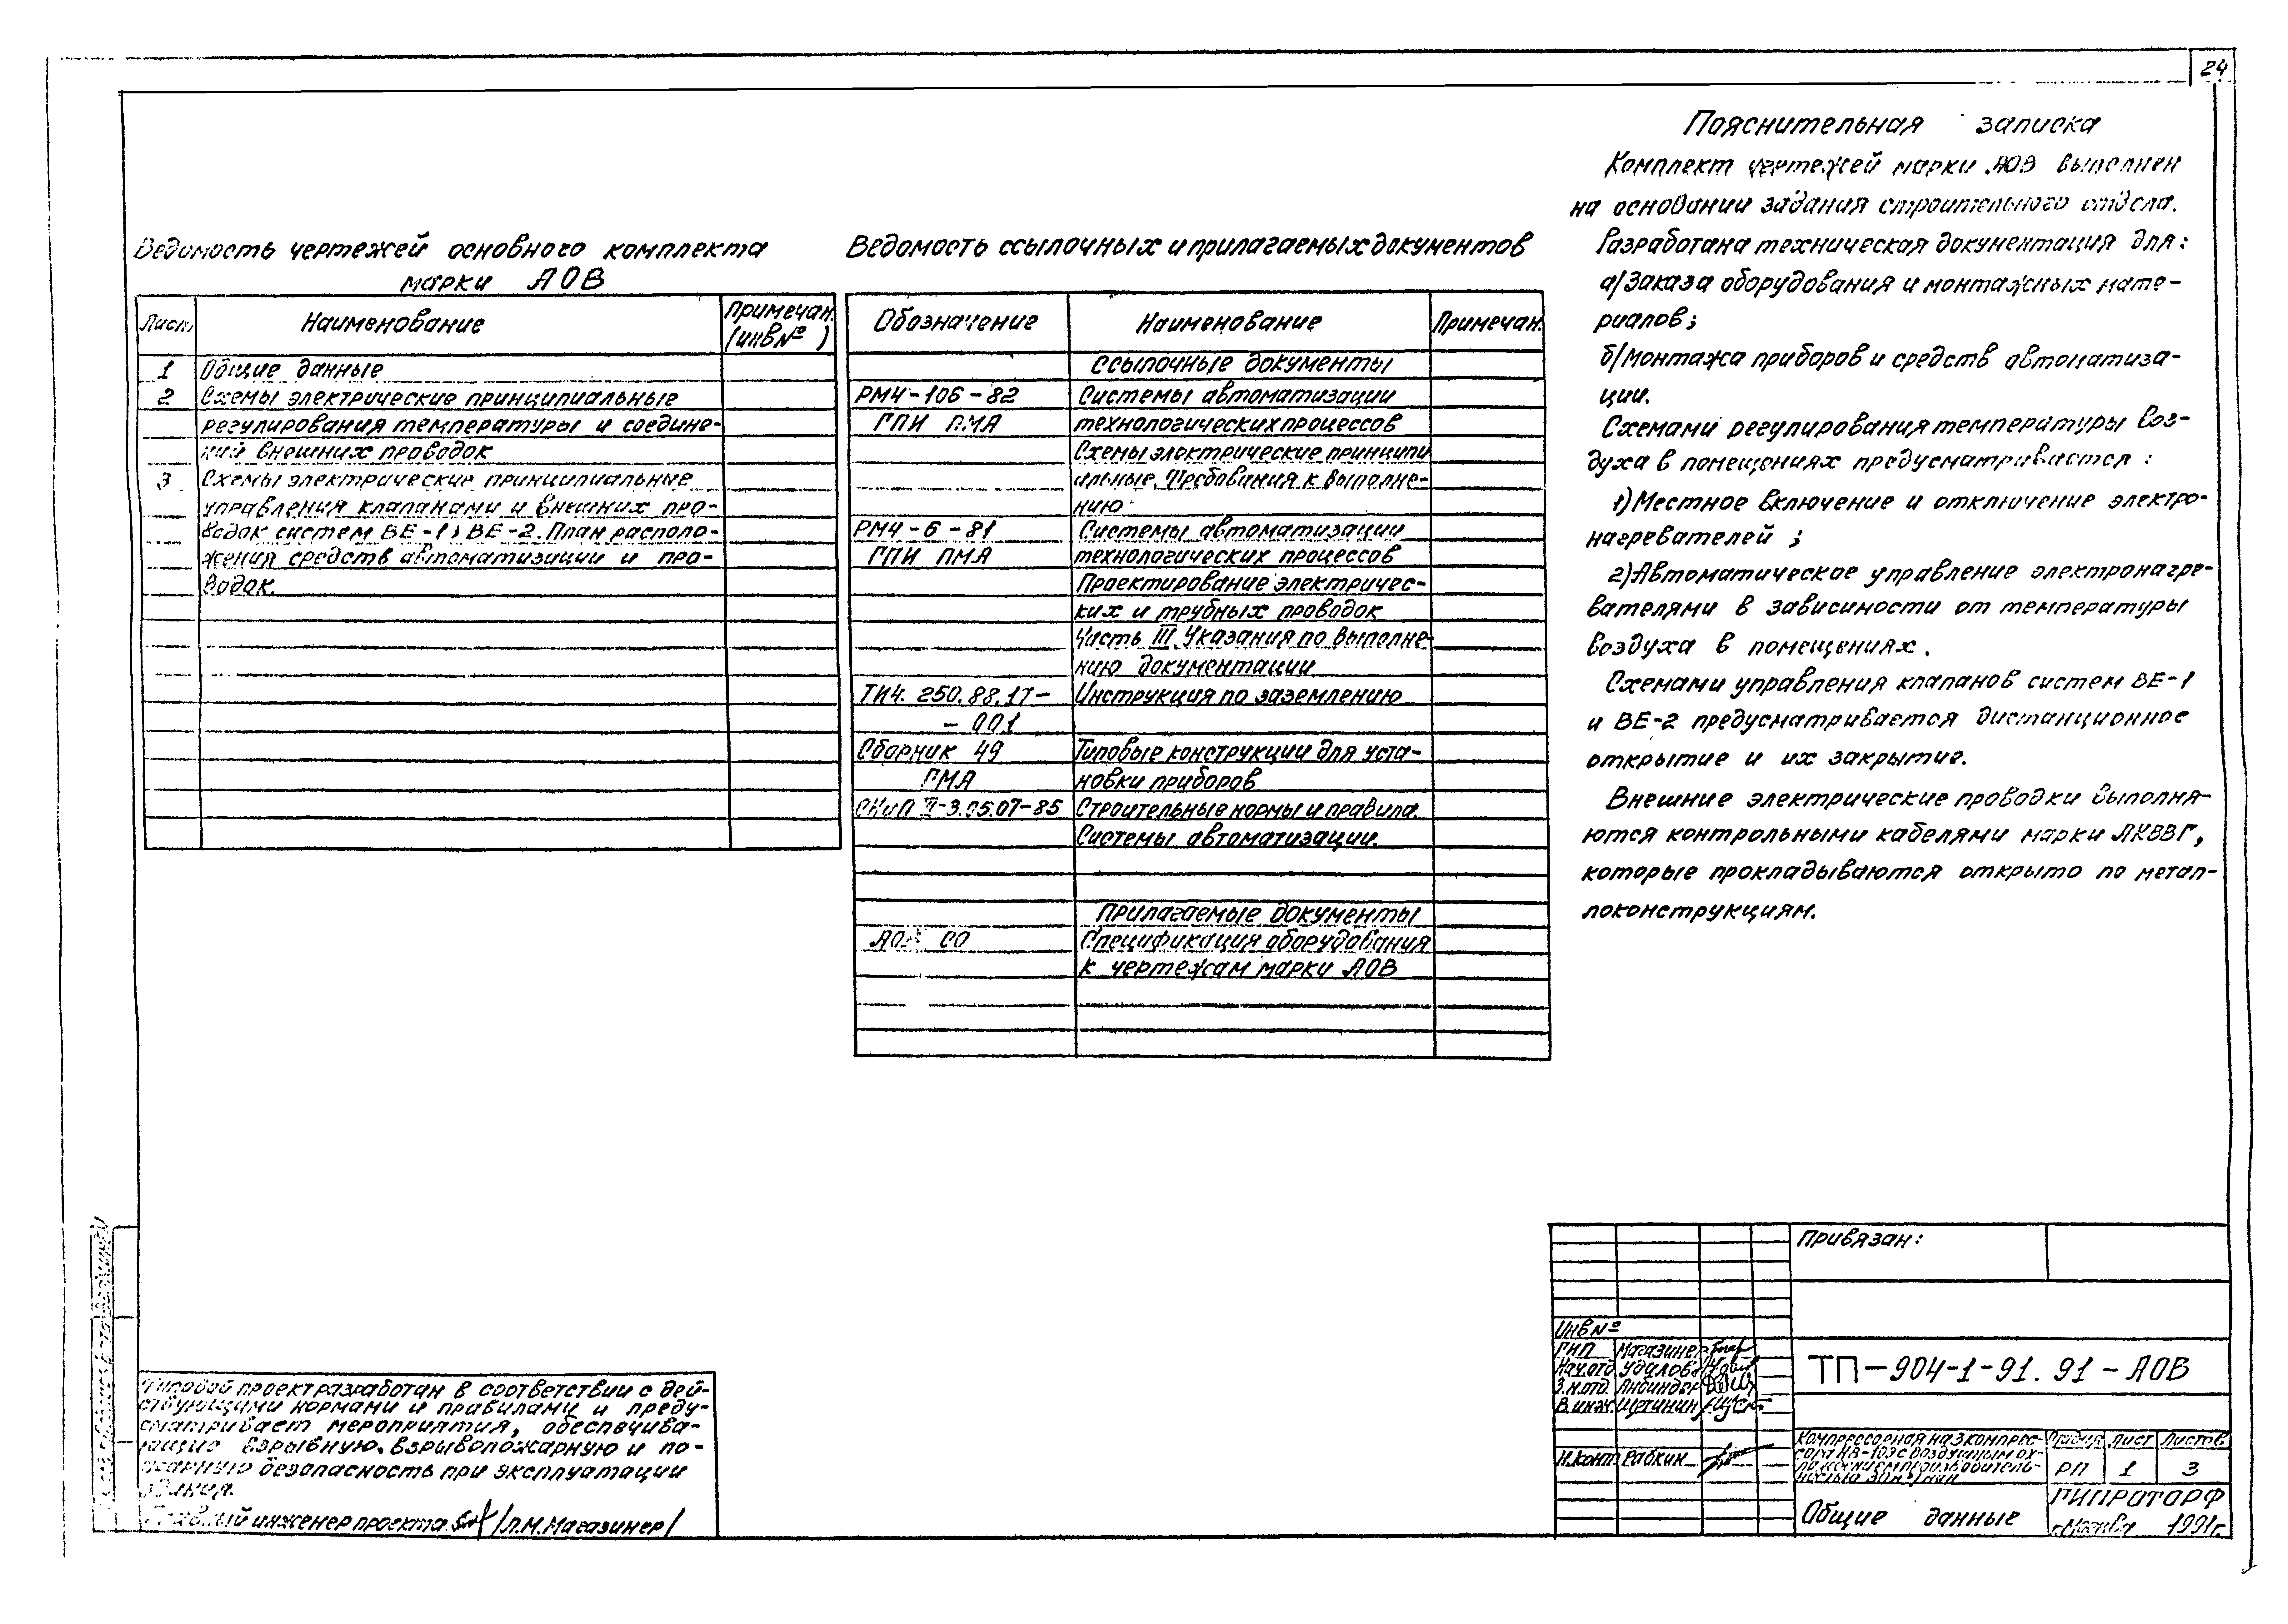 24
Ведомость чертежей основного комплекта
марки АОВ
Лист Наименование Примечан. (инв № )
1 Общие данные
2 Схемы электрические принципиальные
регулирования температуры и соедине-
ний внешних проводок
3 Схемы электрические принципиальные
управления клапанами и внешних про-
водок систем ВЕ-1, ВЕ-2. План располо-
жения средств автоматизации и про-
водок.
Ведомость ссылочных и прилагаемых документов
Обозначение Наименование Примечан.
Ссылочные документы
РМ4-106-82 Системы автоматизации
ГПИ ПМА технологических процессов
Схемы электрические принципи
альные. Требования к выполне-
нию
РМ4-6-81 Системы автоматизации
ГПИ ПМА технологических процессов
Проектирование электричес-
ких и трубных проводок
Часть III. Указания по выполне-
нию документации
ТИ4. 250. 88. 17- Инструкция по заземлению
- 001
Сборник 49 Типовые конструкции для уста-
ПМА новки приборов
СНиП 3.05.07-85 Строительные нормы и правила.
Системы автоматизации.
Прилагаемые документы
АОВ СО Спецификация оборудования
к чертежам марки АОВ
Пояснительная записка
Комплект чертежей марки АОВ выполнен
на основании задания строительного отдела.
Разработана техническая документация для:
а/ Заказа оборудования и монтажных мате-
риалов;
б/ монтажа приборов и средств автоматиза-
ции.
Схемами регулирования температуры воз-
духа в помещениях предусматривается:
1) Местное включение и отключение электро-
нагревателей;
2) Автоматическое управление электронагре-
вателями в зависимости от температуры
воздуха в помещениях.
Схемами управления клапанов систем ВЕ-1
и ВЕ-2 предусматривается дистанционное
открытие и их закрытие.
Внешние электрические проводки выполня-
ются контрольными кабелями марки АКВВГ,
которые прокладываются открыто по метал-
локонструкциям.
Типовой проект разработан в соответствии с дей-
ствующими нормами и правилами и преду-
сматривает мероприятия, обеспечива-
ющие взрывную, взрывопожарную и по-
жарную безопасность при эксплуатации
здания.
Главный инженер проекта /Л.М. Магазинер/
Привязан:
Инв №
ГИП Магазинер
Нач.отд. Удалова
З.н.отд. Линдер
В.инж. Щетинин
Н.конт. Рабкин
ТП-904-1-91. 91-АОВ
Компрессорная на 3 компрес-
с воздушным ох-
производитель-
ностью
Стадия Лист Листов
РП 1 3
Общие данные
ГИПРОТОРФ
г. Москва 1991г.